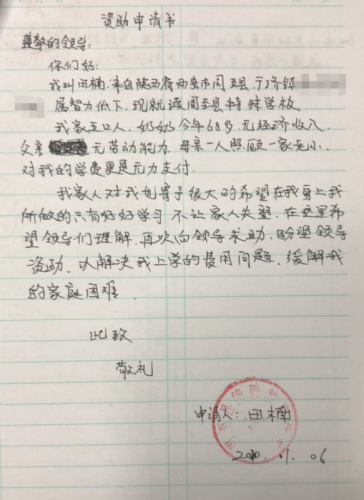 资助申请书
尊敬的领导:
你们好:
我叫田楠,来自陕西省西安市周至县
属智力低下,现就读周至县特殊学校
我家五口人,奶奶今年68岁无经济收入
父亲 无劳动能力 母亲一人照顾一家老小,
对我的学费更是无力支付.
我家人对我也寄予很大的希望在我身上我
所做的只有好好学习 不让家人失望,在这里希
望领导们理解,再次向领导求助,盼望领导
资助,以解决我上学的费用问题,缓解我
的家庭困难.
此致
敬礼
申请人:田楠
06